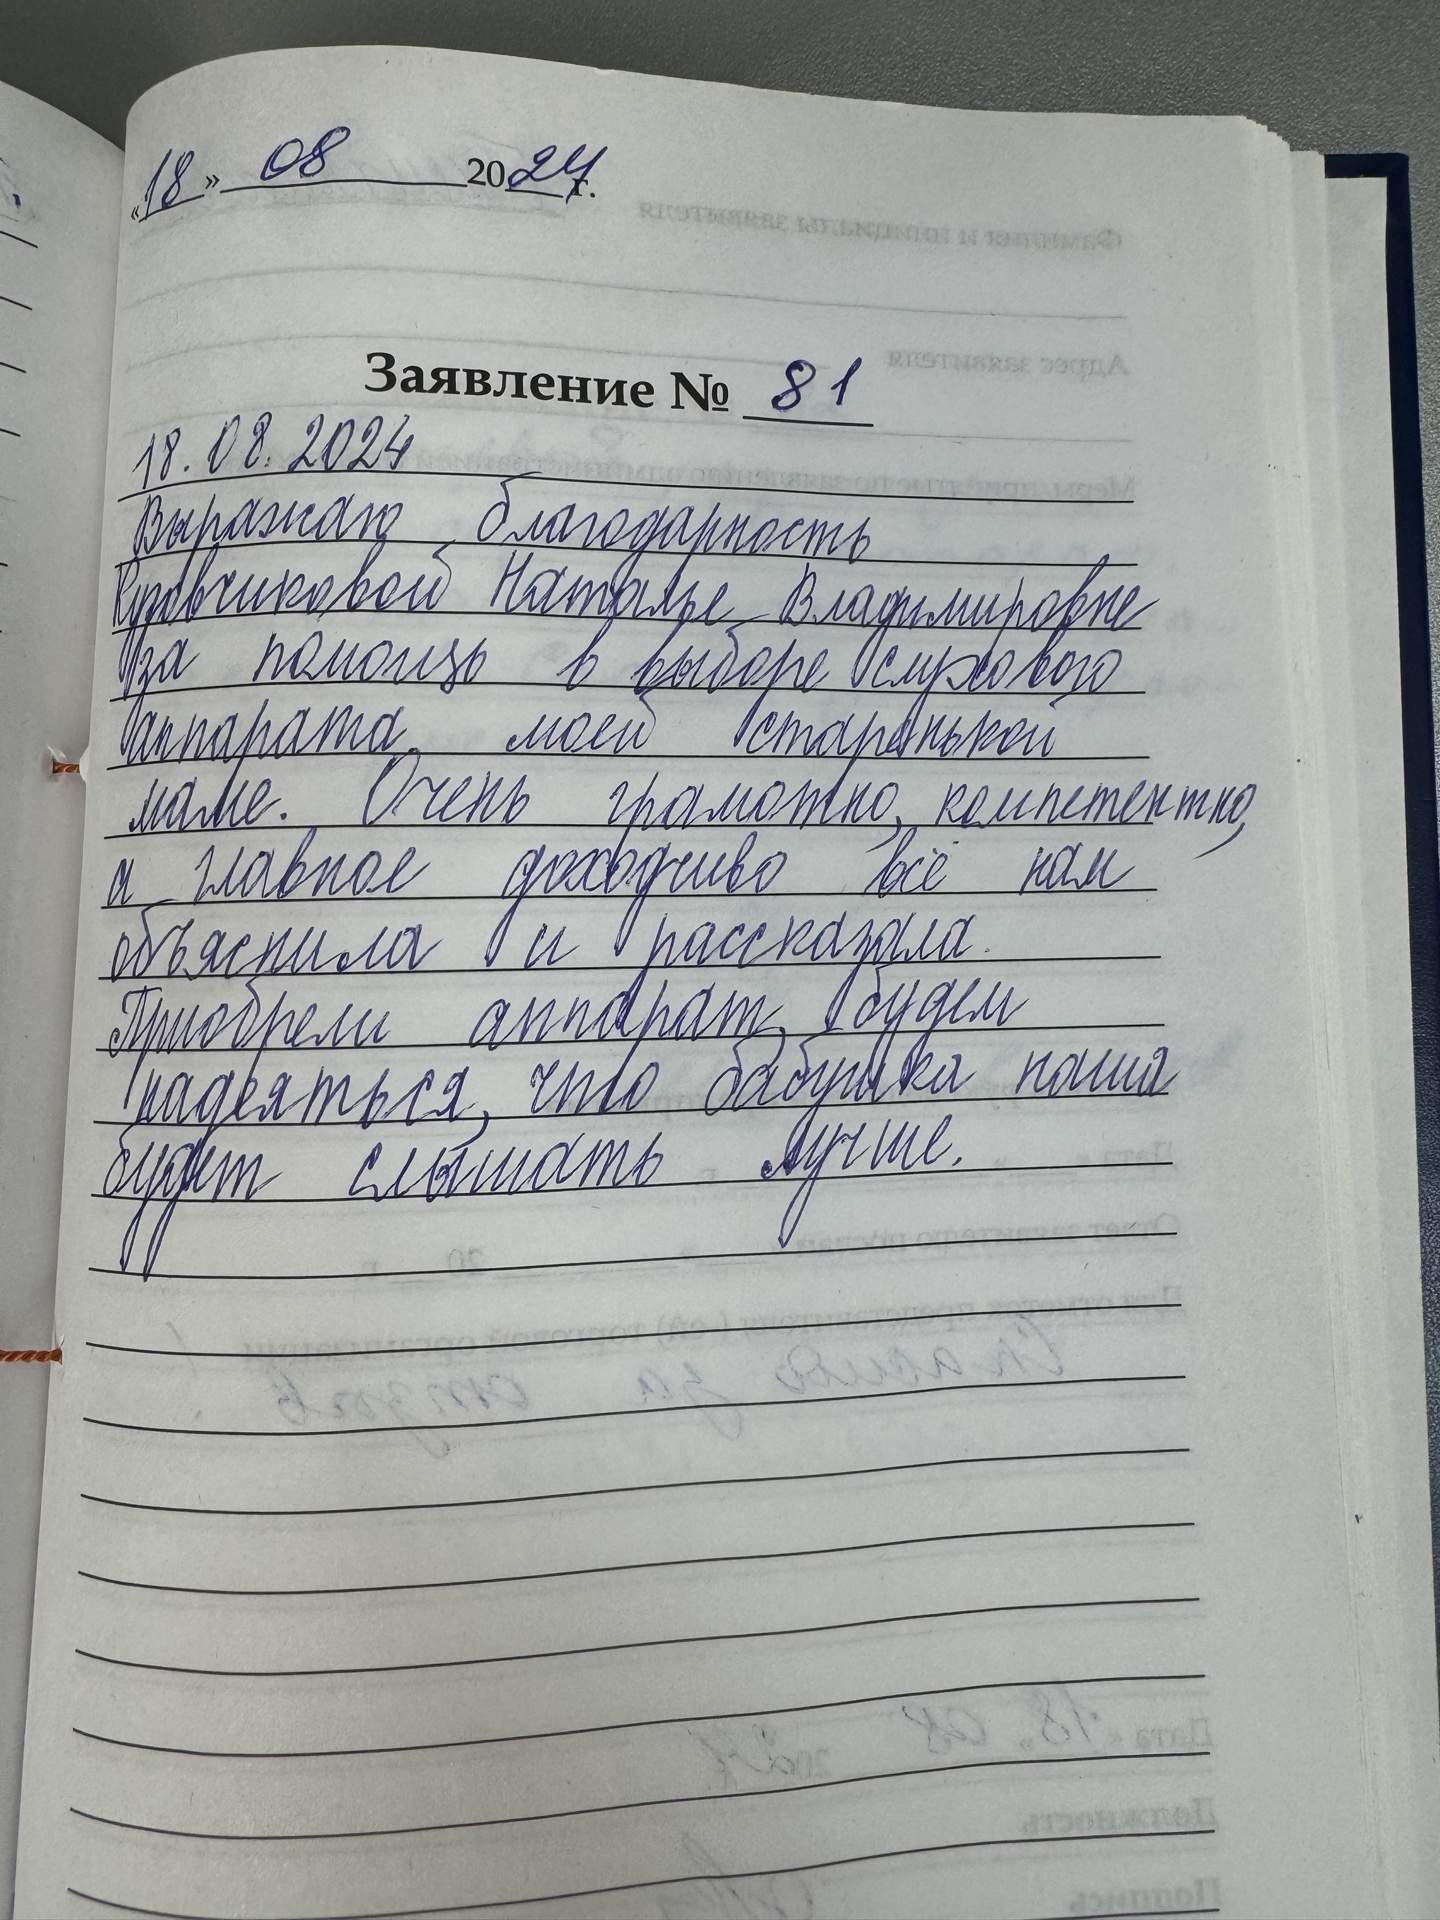 «18» 08 2024 г.
Заявление № 81
18.08.2024
Выражаю благодарность
Кузовчиковой Наталье Владимировне
за помощь в выборе слухового
аппарата моей старенькой
маме. Очень грамотно, компетентно,
а главное доходчиво всё нам
объяснила и рассказала.
Приобрели аппарат, будем
надеяться, что бабушка наша
будет слышать лучше.